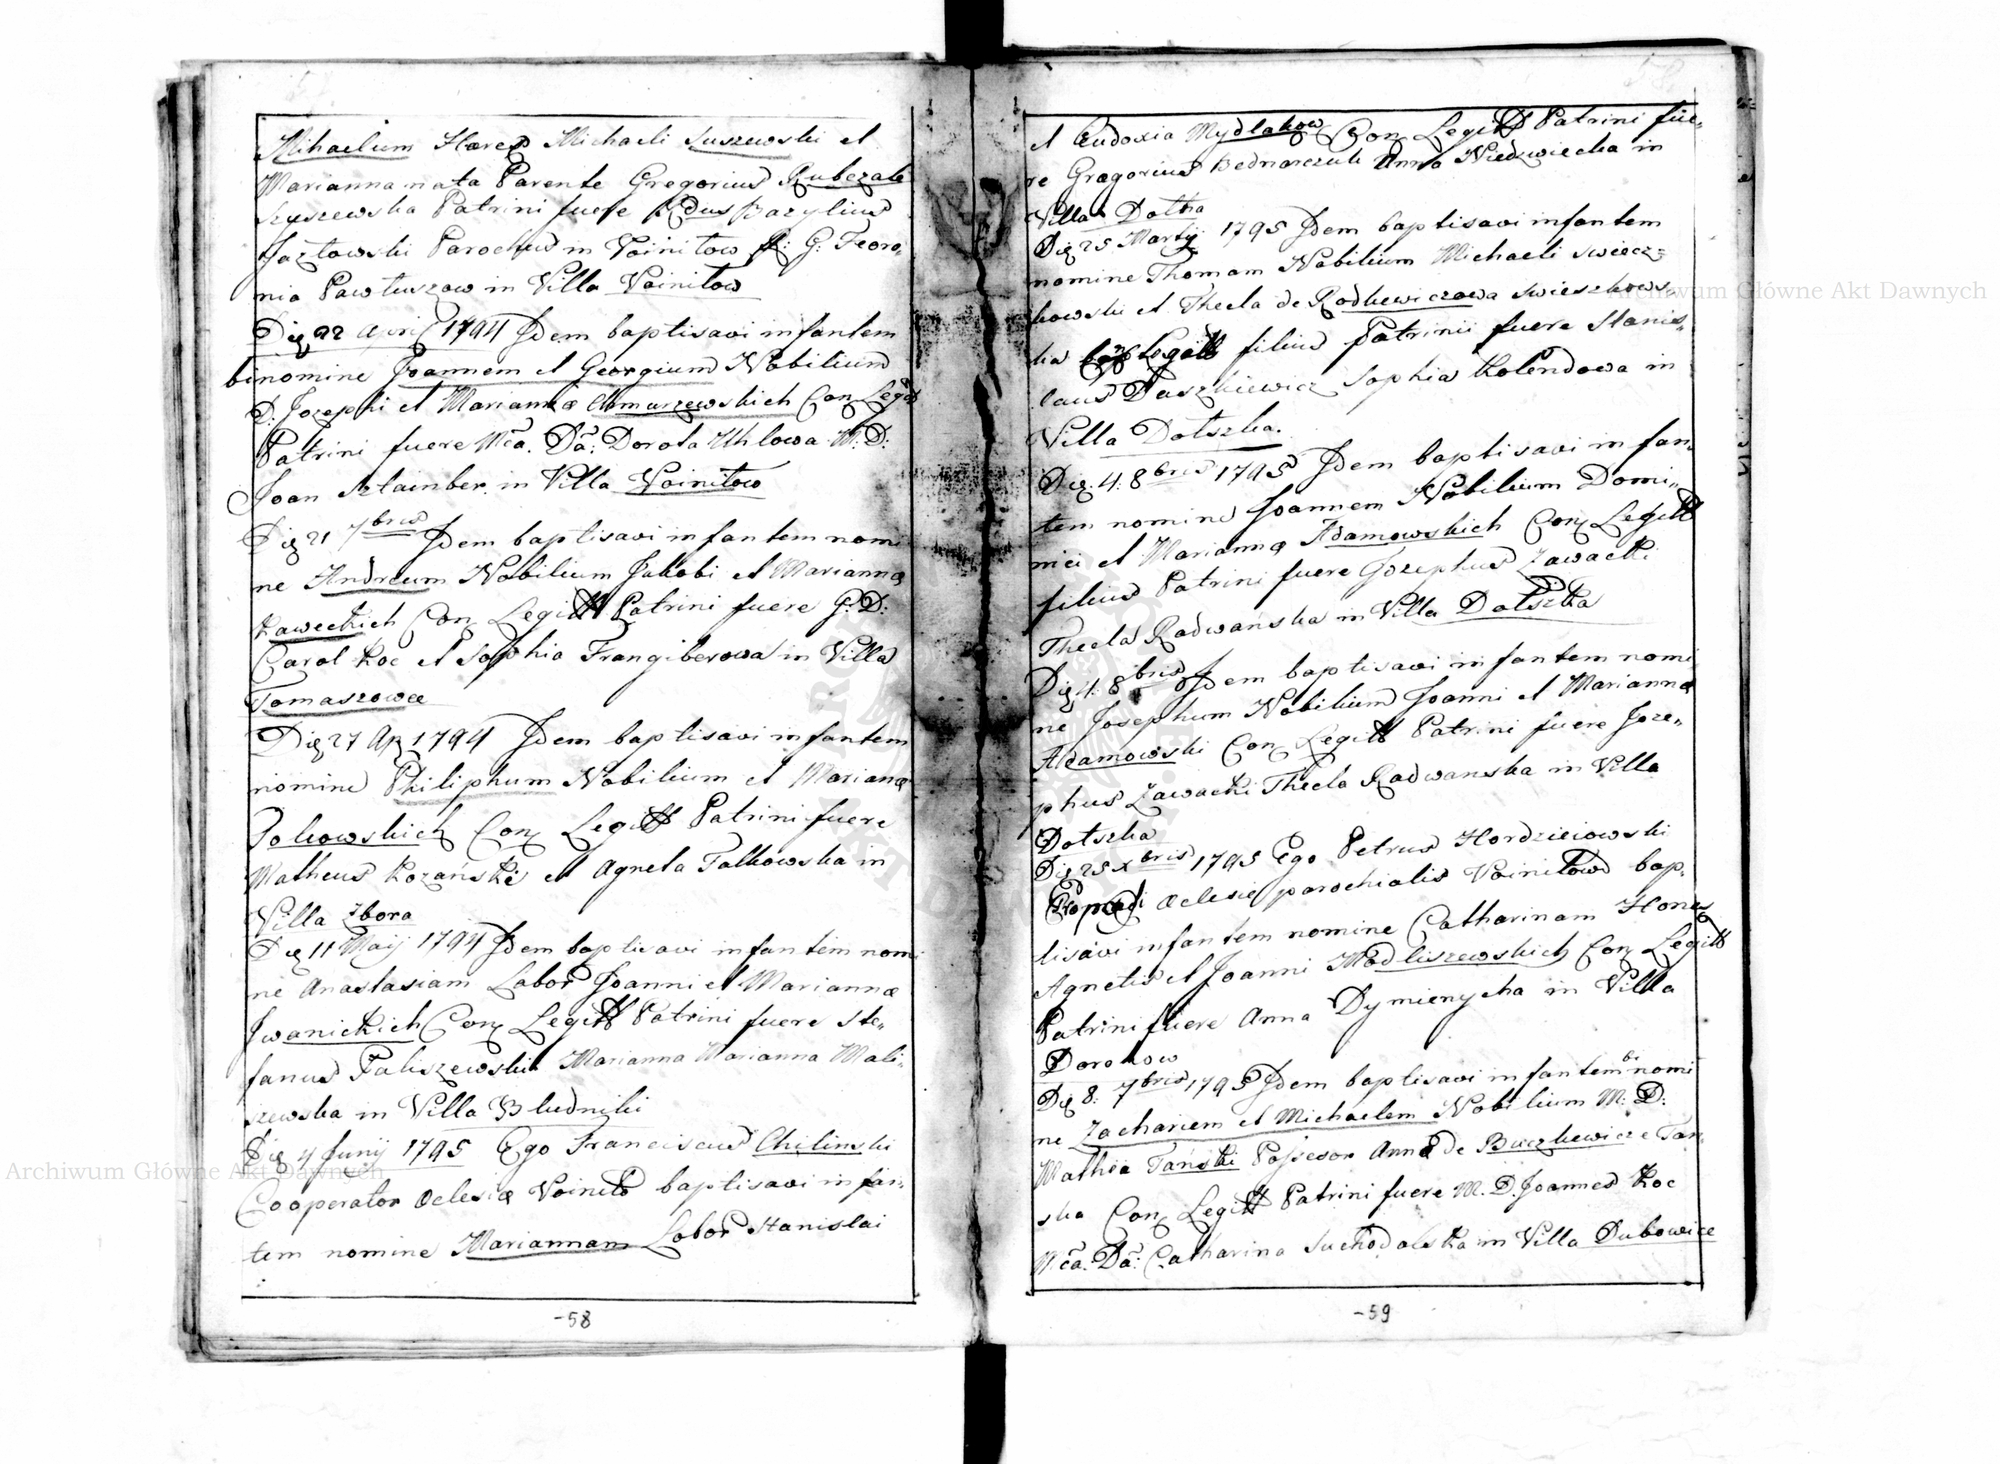 Mihaelium Hæres Michaeli Suszewski et
Marianna nata Parente Gregorius Rubczak
Szyszewska Patrini fuere Rdus Bazylius
Jazłowski Parochus in Voinitow G: Teoro,,
nia Pawłuszow in Villa Voinitow
Die 22 April 1794 Idem baptisavi infantem
binomine Joannem et Georgium Nobilium
D: Jozephi et Mariannæ Chmurzewskich Con Legit
Patrini fuere Mca. Da: Dorota Uhlowa M: D:
Joan Sztainber in Villa Voinitow
Die 21 7bris Idem baptisavi infantem nomi
ne Andreum Nobilium Jakobi et Mariannæ
Kaweckich Con Legitt Patrini fuere G: D:
Carol Koc et Sophia Frangiberowa in Villa
Tomaszowce
Die 27 Ap 1794 Idem baptisavi infantem
nomine Philiphum Nobilium et Marianæ
Polkowskich Conx Legitt Patrini fuere
Matheus Kozański et Agneta Falkowska in
Villa Zbora
Die 11 Maij 1794 Idem baptisavi infantem nomi
ne Anastasiam Labor Joanni et Mariannæ
Jwanickich Conx Legitt Patrini fuere Ste,,
fanus Paliszewski Marianna Marianna Mali,,
szewska in Villa Bludniki
Die 4 Junij 1795 Ego Franciscus Chilinski
Cooperator Æclesiæ Voinito baptisavi infan,,
tem nomine Mariannam Labor Stanislai
-58
et Eudoxia Mydlakow Conx Legitt Patrini fue,,
re Gregorius Bednarczuk Anna Niedzwiecka in
Villa Dotha
Die 25 Martij 1795 Idem baptisavi infantem
nomine Thomam Nobilium Michaeli Swiecz=
kowski et Thecla de Rodkewiczowa Swieszkows,,
ka Legitt filius Patrinii fuere Stanis,,
laus Daszkiewicz Sophia Kolendowa in
Villa Dotszka.
Die 4: 8bris 1795 Idem baptisavi infan,,
tem nomine Joannem Nobilium Domi,,
nici et Mariannæ Adamowskich Conx Legitt
filius Patrini fuere Jozephus Zawacki
Thecla Radwańska in Villa Dotszka
Die 4: 8bris Idem baptisavi infantem nomi
ne Josephum Nobilium Joanni et Mariannæ
Adamowski Conx Legitt Patrini fuere Joze,,
phus Zawacki Thecla Radwanska in Villa
Dotszka
Die 25 Xbris 1795 Ego Petrus Hordziejowski
Æclesiæ parochialis Voinitow bap,,
tisavi infantem nomine Catharinam Hones
Agnetis et Joanni Modliszewskich Conx Legitt
Patrini fuere Anna Dymienycka in Villa
Dorohow
Die 8: 7bris 1795 Idem baptisavi infantem bi nomi
ne Zachariem et Michaelem Nobilium M: D:
Mathia Tański Possesor Anna de Buczkewicze Tan,,
ska Conx Legitt Patrini fuere M. D. Joannes Koc
Mca. Da: Catharina Suchodolska in Villa Dubowice
-59
Archiwum Główne Akt Dawnych
Archiwum Główne Akt Dawnych